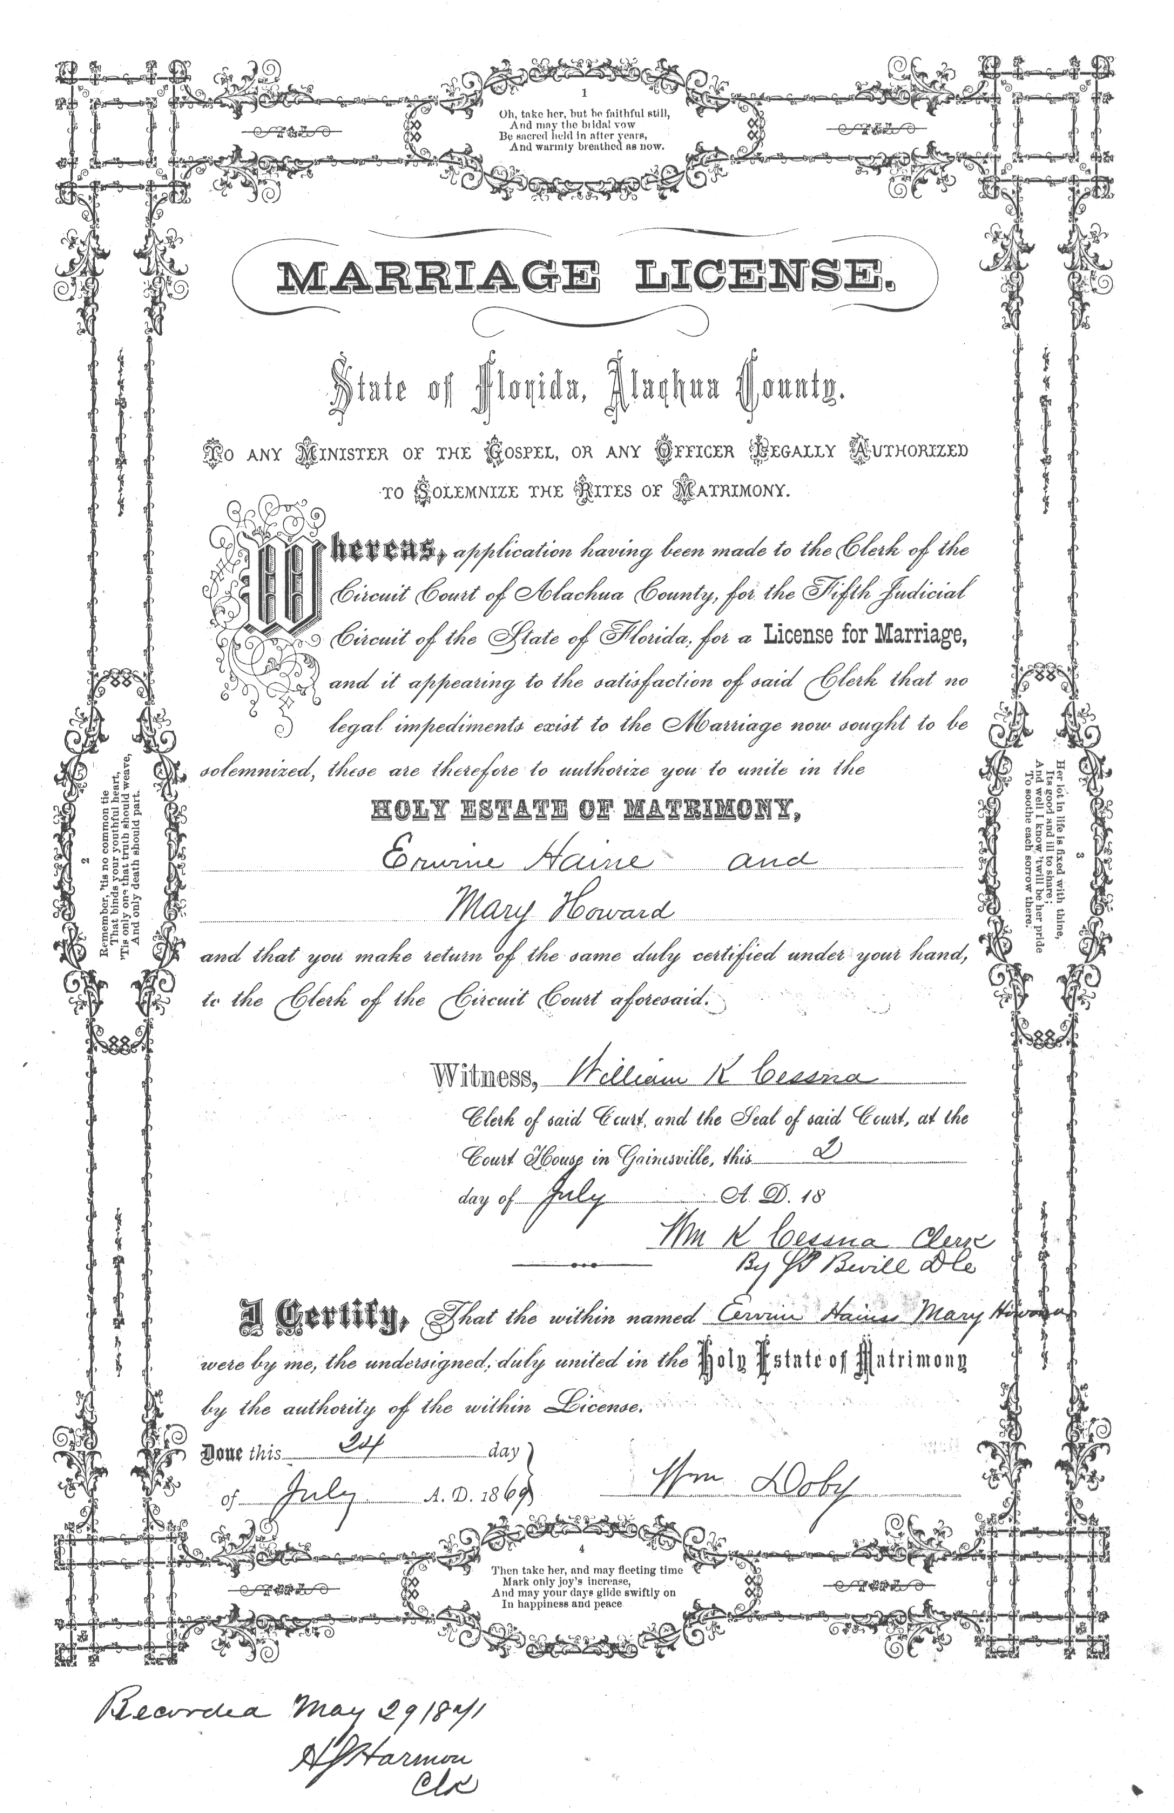 1
Oh, take her, but be faithful still,
And may the bridal vow
Be sacred held in after years,
And warmly breathed as now.
MARRIAGE LICENSE.
State of Florida, Alachua County.
TO ANY MINISTER OF THE GOSPEL, OR ANY OFFICER LEGALLY AUTHORIZED
TO SOLEMNIZE THE RITES OF MATRIMONY.
Whereas, application having been made to the Clerk of the
Circuit Court of Alachua County, for the Fifth Judicial
Circuit of the State of Florida, for a License for Marriage,
and it appearing to the satisfaction of said Clerk that no
legal impediments exist to the Marriage now sought to be
solemnized, these are therefore to authorize you to unite in the
HOLY ESTATE OF MATRIMONY,
Erwine Haine and
Mary Howard
and that you make return of the same duly certified under your hand,
to the Clerk of the Circuit Court aforesaid.
Witness, William K Cessna
Clerk of said Court, and the Seal of said Court, at the
Court House in Gainesville, this 2
day of July A. D. 18
Wm K Cessna Clerk
By Bevill
I Certify, That the within named Ervine Hains Mary Howard
were by me, the undersigned, duly united in the Holy Estate of Matrimony
by the authority of the within License.
Done this 24 day
of July A. D. 1869
Wm Doby
2
Remember, 'tis no common tie
That binds your youthful heart,
'Tis only one that truth should weave,
And only death should part.
3
Her lot in life is fixed with thine,
Its good and ill to share;
And well I know 'twill be her pride
To soothe each sorrow there.
4
Then take her, and may fleeting time
Mark only joy's increase,
And may your days glide swiftly on
In happiness and peace
Recorded May 29 1871
Harmon
Clk